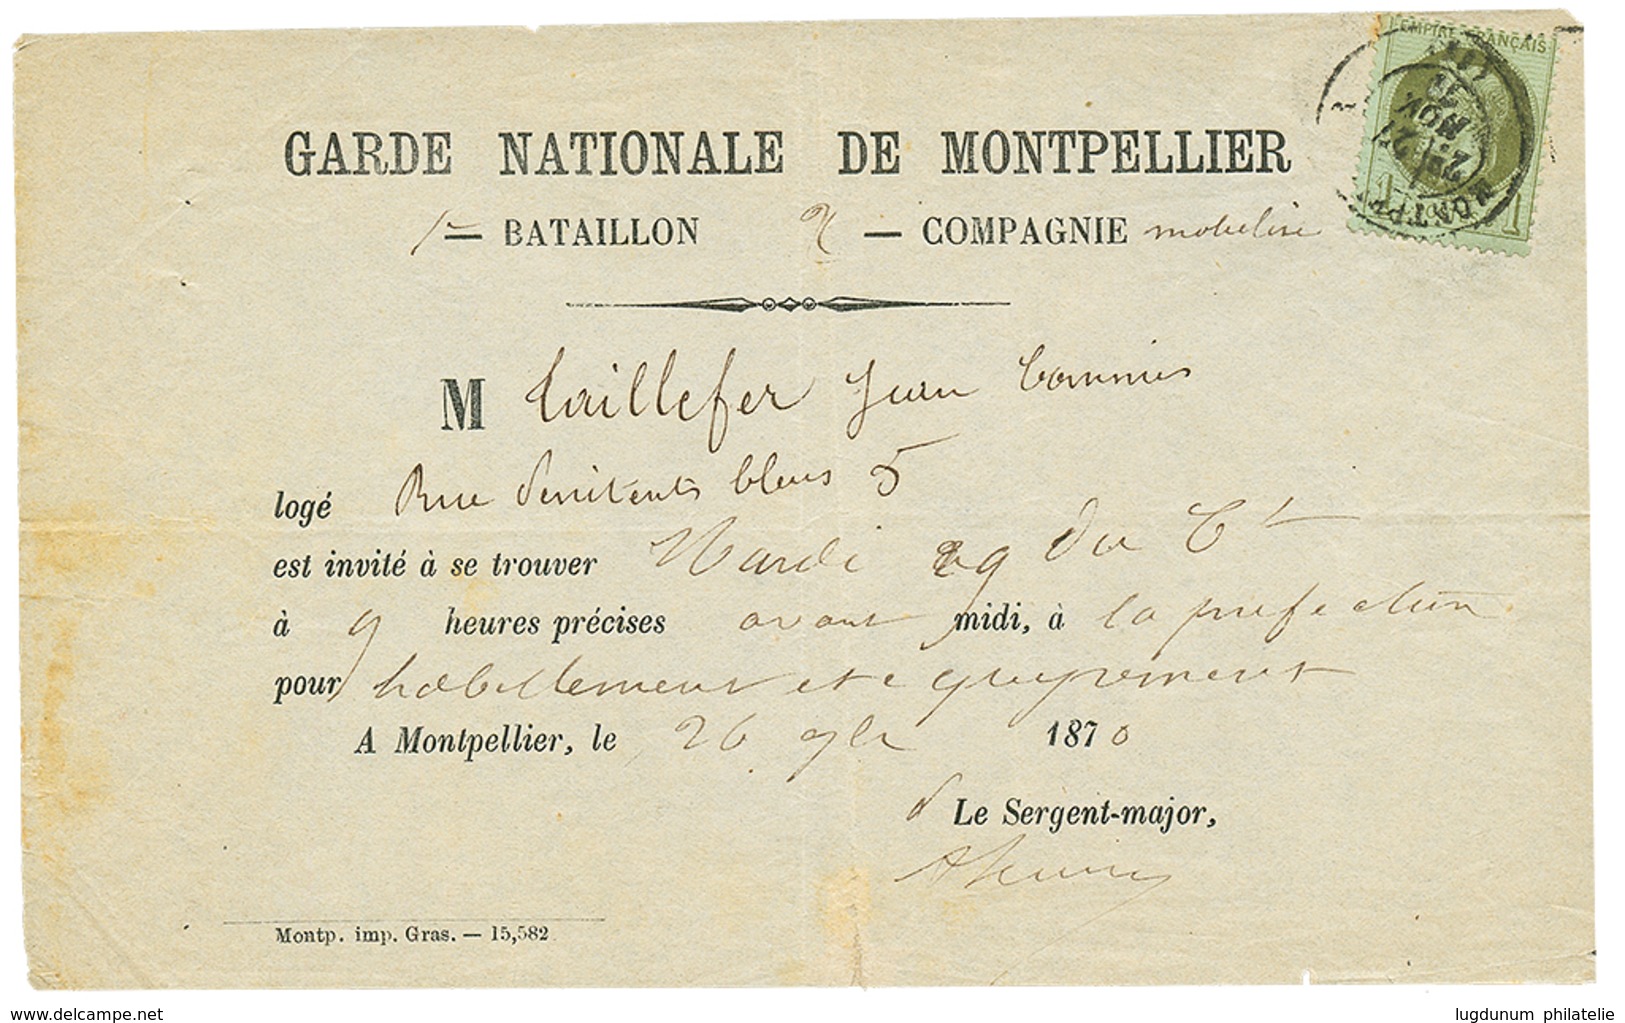 L'EMPIRE FRANÇAIS
GARDE NATIONALE DE MONTPELLIER
1er — BATAILLON 2 — COMPAGNIE mobilisé
M Taillefer Jean Commis
logé Rue Penitents bleus 5
est invité à se trouver Mardi 29 du Ct
à 9 heures précises avant midi, à la prefection
pour habillement et equipement
A Montpellier, le 26 9bre 1870
Le Sergent-major,
Montp. imp. Gras. — 15,582
delcampe.net
lugdunum philatelie